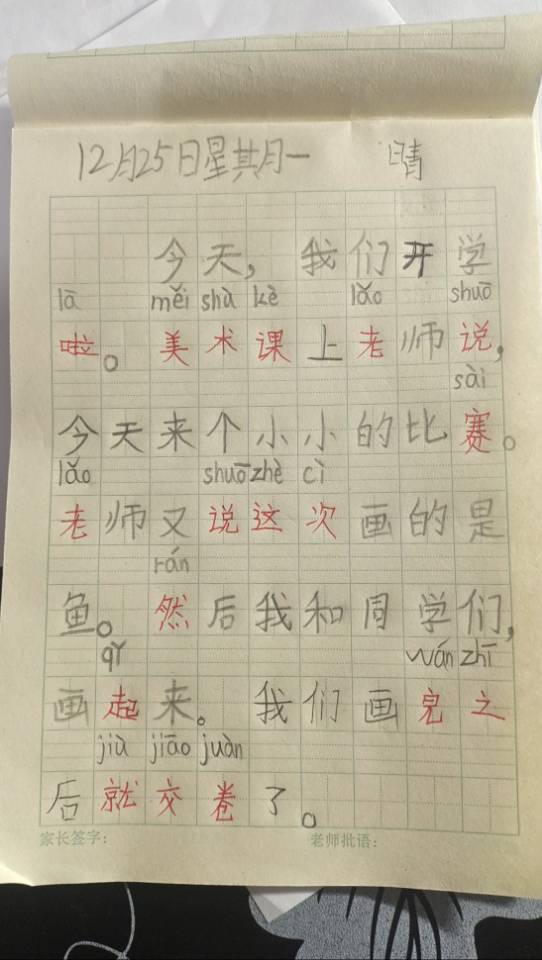 12月25日星其月一 晴
今天，我们开学
lā měi shù kè lǎo shuō
啦。美术课上老师说，
sài
今天来个小小的比赛。
lǎo shuō zhè cì
老师又说这次画的是
rán
鱼。然后我和同学们，
qǐ wán zhī
画起来。我们画完之
jiù jiāo juàn
后就交卷了。
家长签字： 老师批语：